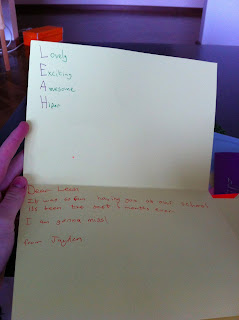 Lovely
Exciting
Awesome
Hiper
Dear Leah
It was so fun having you at our school
its been the best 3 months ever.
I am gonna miss
from Jayden